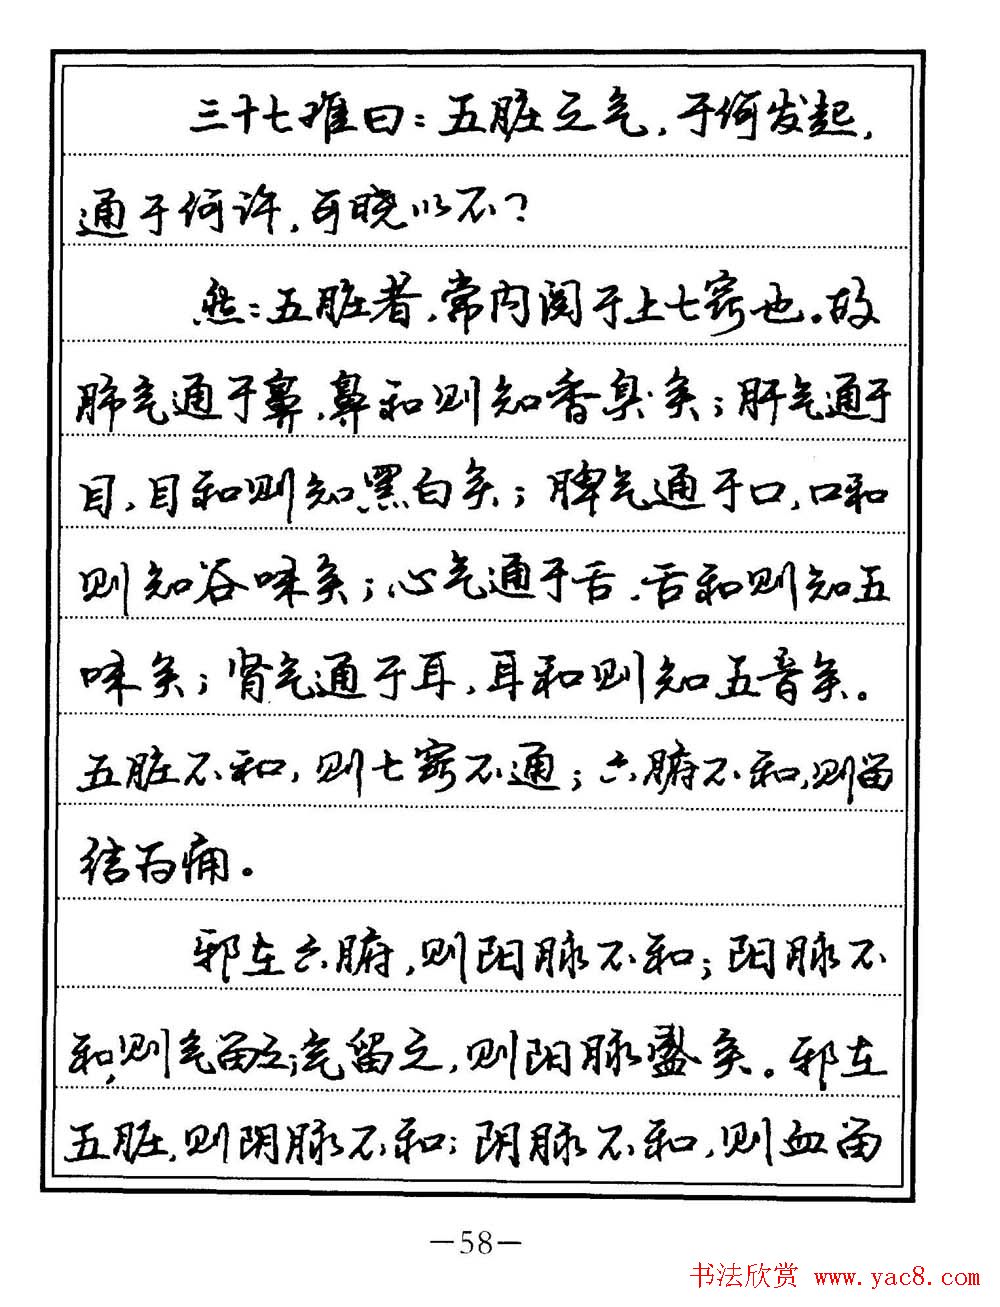 三十七难曰：五脏之气，于何发起，
通于何许，可晓以不？
然：五脏者，常内阅于上七窍也。故
肺气通于鼻，鼻和则知香臭矣；肝气通于
目，目和则知黑白矣；脾气通于口，口和
则知谷味矣；心气通于舌，舌和则知五
味矣；肾气通于耳，耳和则知五音矣。
五脏不和，则七窍不通；六腑不和，则留
结为痈。
邪在六腑，则阳脉不和；阳脉不
和，则气留之；气留之，则阳脉盛矣。邪在
五脏，则阴脉不和；阴脉不和，则血留
—58—
书法欣赏 www.yac8.com